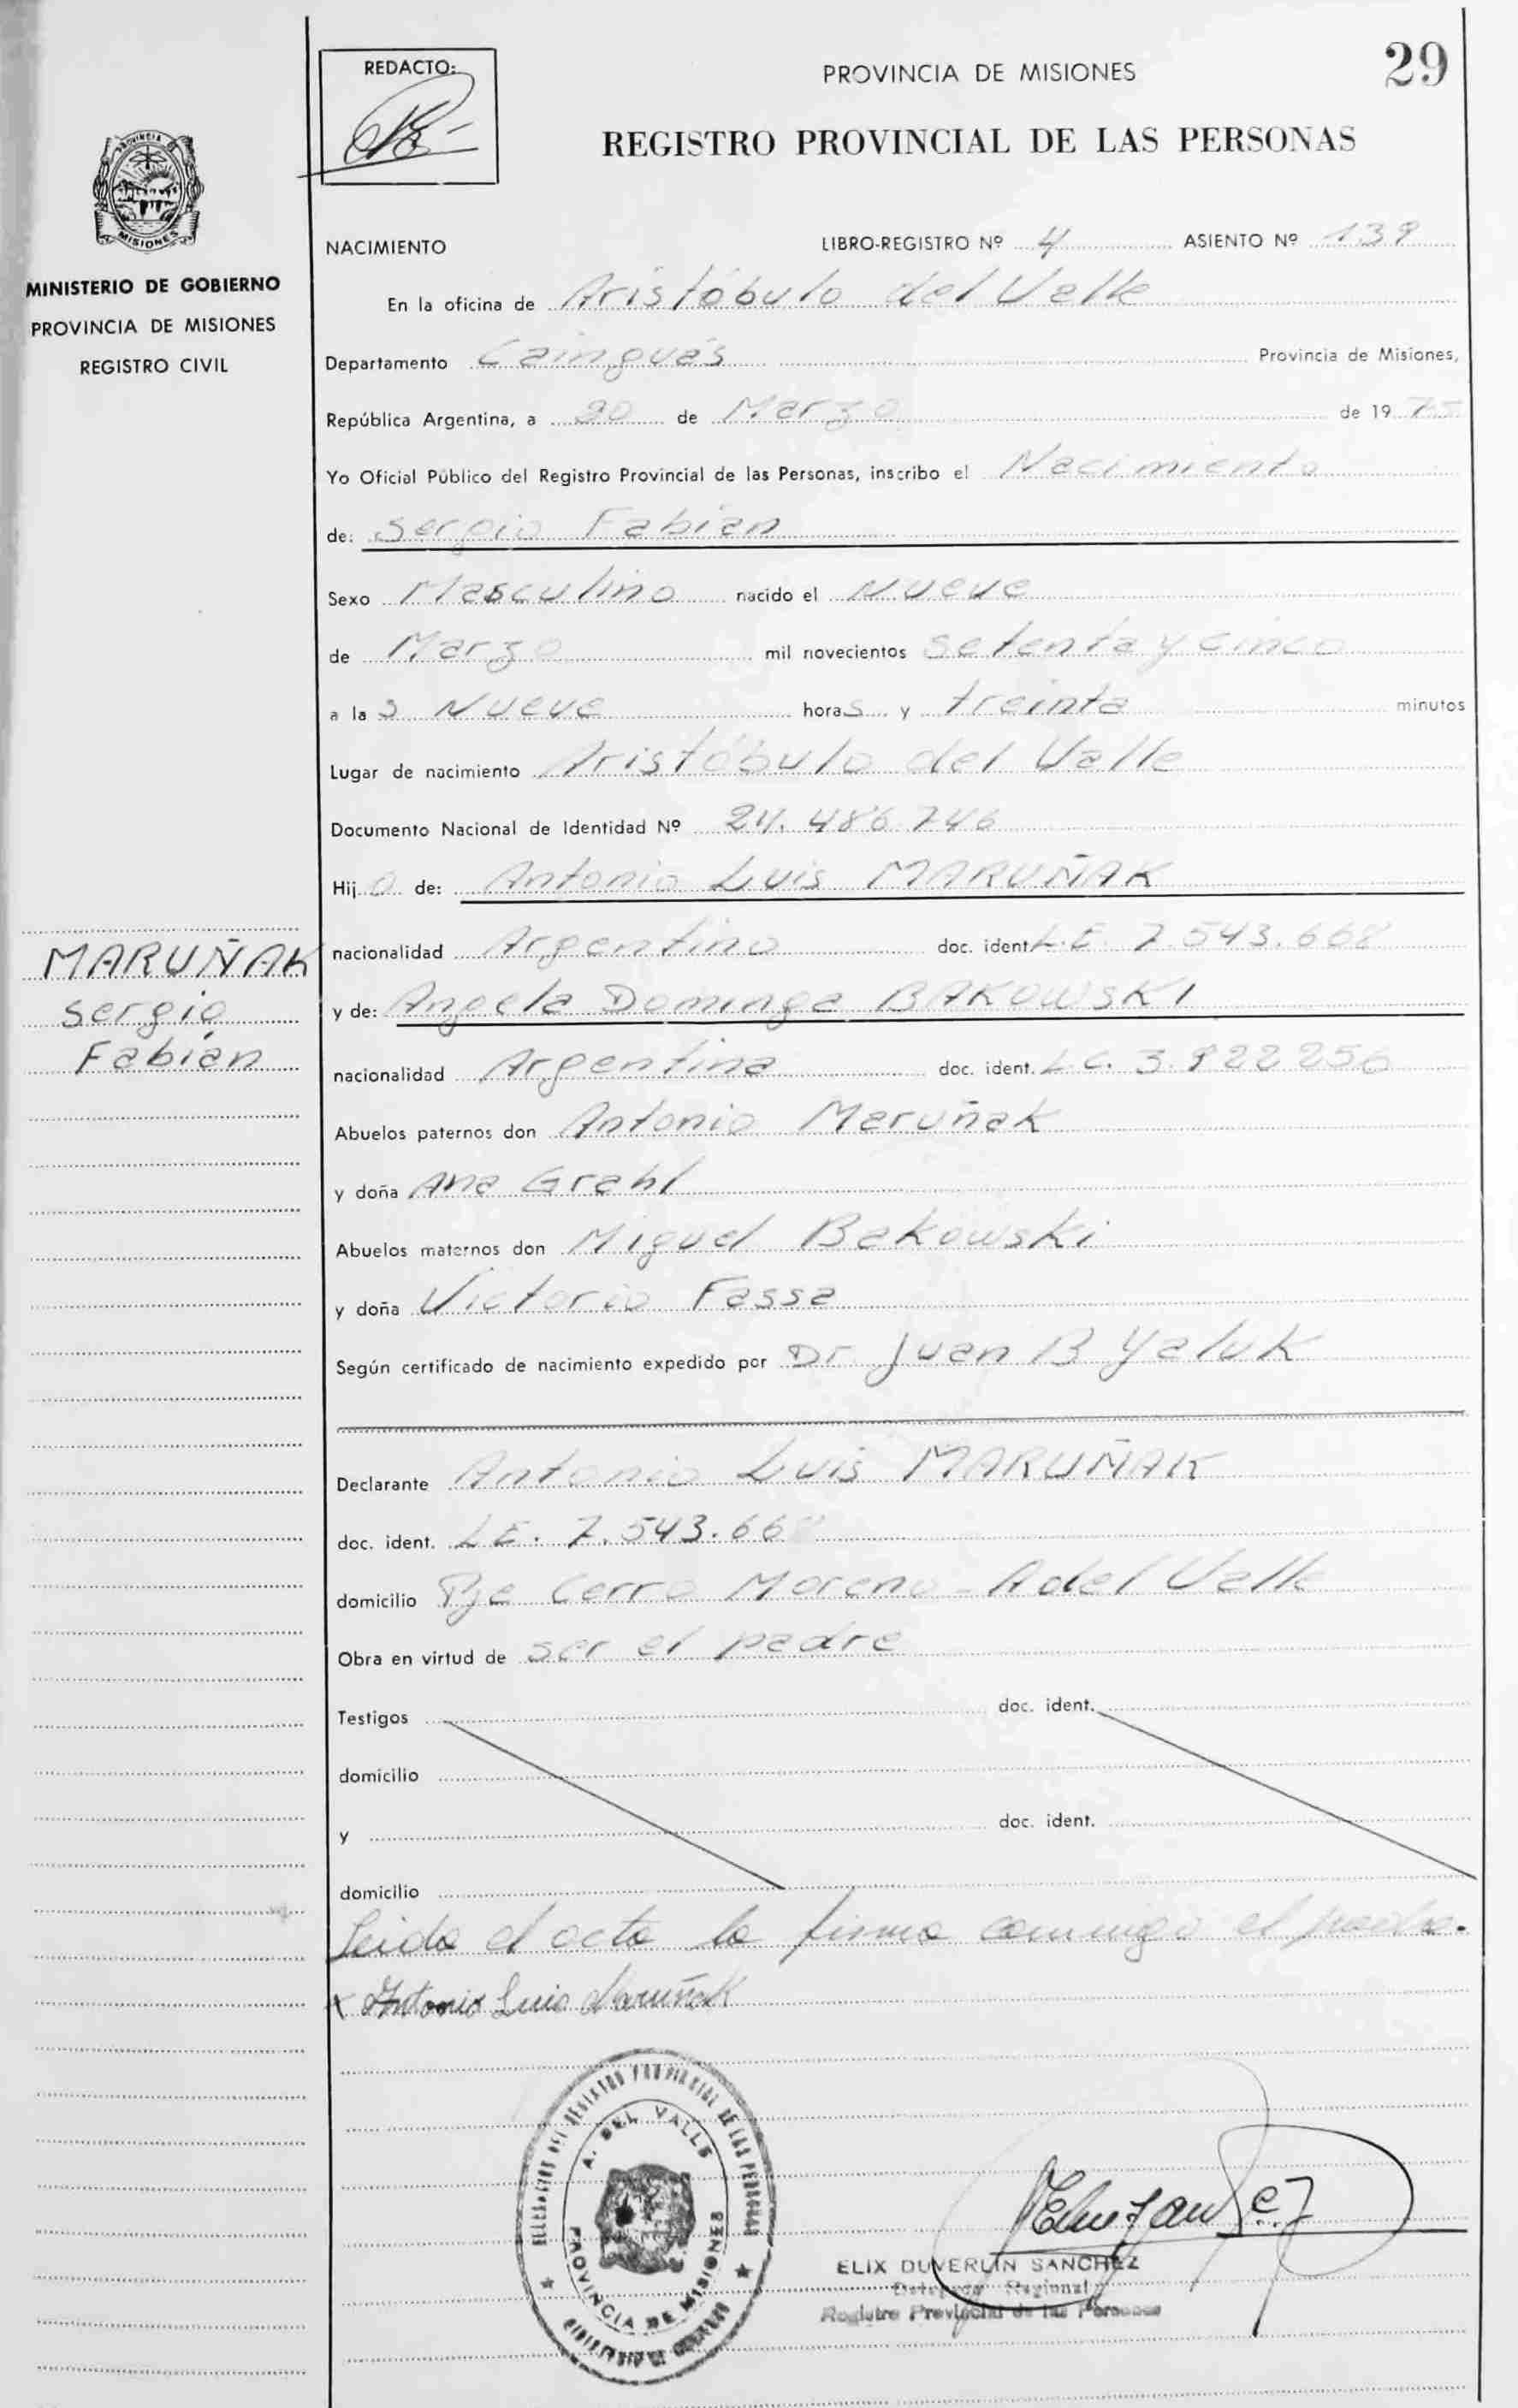 29
REDACTO:
PROVINCIA DE MISIONES
REGISTRO PROVINCIAL DE LAS PERSONAS
PROVINCIA
MISIONES
MINISTERIO DE GOBIERNO
PROVINCIA DE MISIONES
REGISTRO CIVIL
NACIMIENTO LIBRO-REGISTRO Nº 4 ASIENTO Nº 139
En la oficina de Aristóbulo del Valle
Departamento Cainguás Provincia de Misiones,
República Argentina, a 20 de Marzo de 1975
Yo Oficial Público del Registro Provincial de las Personas, inscribo el Nacimiento
de: Sergio Fabián
Sexo Masculino nacido el Nueve
de Marzo mil novecientos setenta y cinco
a las Nueve horas y treinta minutos
Lugar de nacimiento Aristóbulo del Valle
Documento Nacional de Identidad Nº 24.486.746
Hijo de: Antonio Luis MARUÑAK
nacionalidad Argentino doc. ident. L.E. 7.543.668
y de: Angela Dominga BAKOWSKI
nacionalidad Argentina doc. ident. L.C. 3.922.256
MARUÑAK
Sergio
Fabián
Abuelos paternos don Antonio Maruñak
y doña Ana Grahl
Abuelos maternos don Miguel Bakowski
y doña Victoria Fassa
Según certificado de nacimiento expedido por Dr. Juan B Yaluk
Declarante Antonio Luis MARUÑAK
doc. ident. L.E. 7.543.668
domicilio Pje Cerro Moreno - A del Valle
Obra en virtud de ser el padre
Testigos doc. ident.
domicilio
y doc. ident.
domicilio
Leida el acta la firma conmigo el padre.
x Antonio Luis Maruñak
REGISTRO PROVINCIAL DE LAS PERSONAS
A. DEL VALLE
PROVINCIA DE MISIONES
ELIX DUVERLIN SANCHEZ
Delegado Regional
Registro Provincial de las Personas